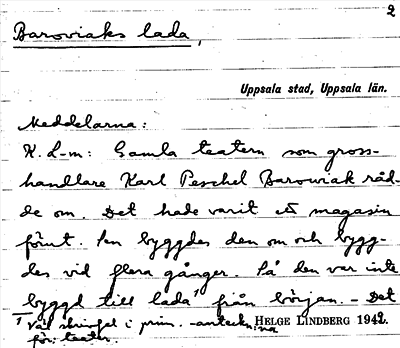 2
Barowiaks lada,
Uppsala stad, Uppsala län.
Meddelarna:
K. L-m: Gamla teatern som gross-
handlare Karl Peschel Barowiak råd-
de om. Det hade varit ett magasin
förut. Sen byggdes den om och bygg-
des vid flera gånger. Så den var inte
byggd till lada¹ från början. – Det
1 Väl skrivfel i prim.-anteckn:na
för: teater.
HELGE LINDBERG 1942.